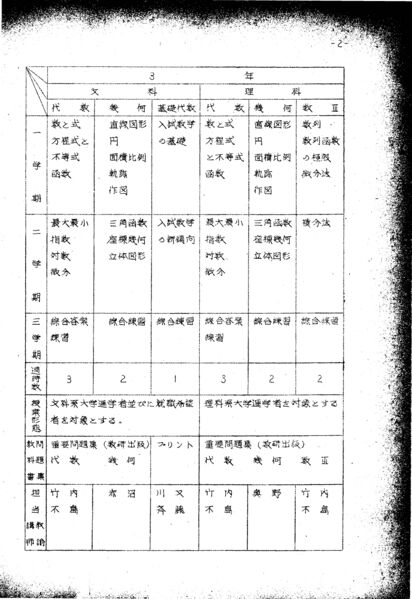 - 2 -
3 年
文 科 理 科
代 数 幾 何 基礎代数 代 数 幾 何 数 Ⅲ
一学期
数と式
方程式と
不等式
函数
直線図形
円
面積比例
軌跡
作図
入試数学
の基礎
数と式
方程式
と不等式
函数
直線図形
円
面積比例
軌跡
作図
数列
数列函数
の極限
微分法
二学期
最大最小
指数
対数
微分
三角函数
座標幾何
立体図形
入試数学
の新傾向
最大最小
指数
対数
微分
三角函数
座標幾何
立体図形
積分法
三学期
綜合答案
練習
綜合練習
綜合練習
綜合答案
練習
綜合練習
綜合練習
週時数
3 2 1 3 2 2
授業形態
文科系大学進学者並びに就職希望
者を対象とする。
理科系大学進学者を対象とする
教科書
問題集
重要問題集(数研出版)
代 数 幾 何
プリント
重要問題集(数研出版)
代 数 幾 何 数 Ⅲ
担当講師
教諭
竹 内
不 島
志 沼
川 又
斉 藤
竹 内
不 島
奥 野
竹 内
不 島